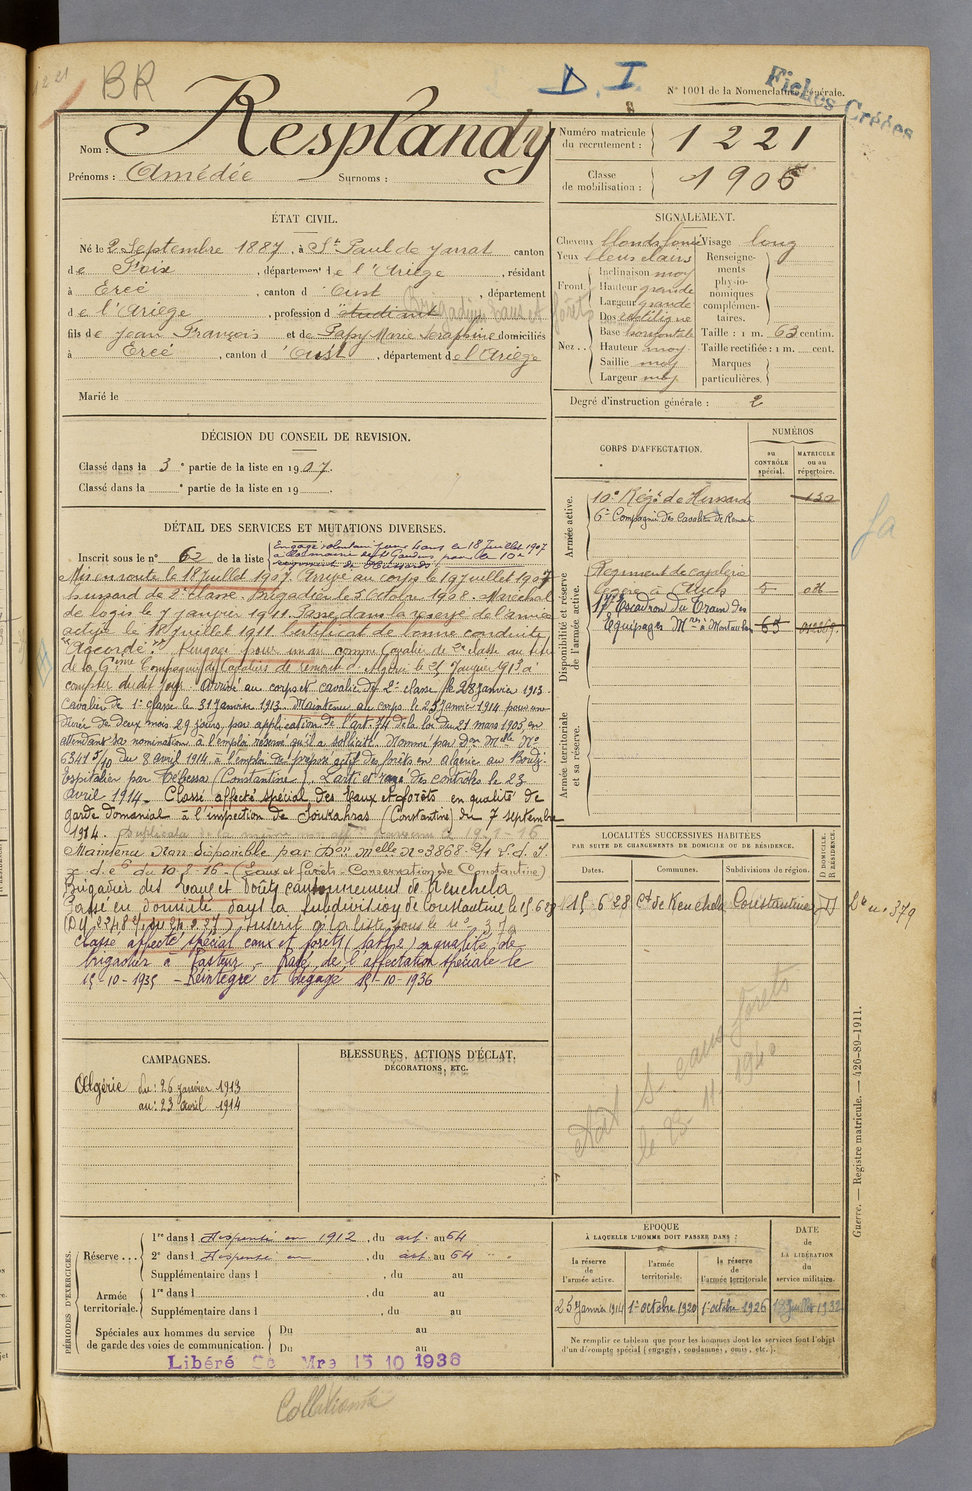 BR
D. I.
Fichés Créées
N° 1001 de la Nomenclature générale.
Nom : Resplandy
Prénoms : Amédée Surnoms :
Numéro matricule du recrutement : 1221
Classe de mobilisation : 1905
ÉTAT CIVIL.
Né le 2 Septembre 1887, à St Paul de Jarrat canton
de Foix, département de l'Ariège, résidant
à Ercé, canton d'Oust, département
de l'Ariège, profession d'étudiant Brigadier Eaux et forêts
fils de Jean François et de Papy Marie Séraphine domiciliés
à Ercé, canton d'Oust, département de l'Ariège
Marié le
SIGNALEMENT.
Cheveux blonds foncé Visage long
Yeux bleus clairs
Front. Inclinaison moy
Hauteur grande
Largeur grande
Nez.. Dos rectiligne
Base horizontale
Hauteur moy
Saillie moy
Largeur moy
Renseignements physionomiques complémentaires.
Taille : 1 m. 63 centim.
Taille rectifiée : 1 m. cent.
Marques particulières.
Degré d'instruction générale : 2
DÉCISION DU CONSEIL DE REVISION.
Classé dans la 3e partie de la liste en 1907.
Classé dans la e partie de la liste en 19 .
CORPS D'AFFECTATION.
NUMÉROS
au CONTRÔLE spécial.
MATRICULE ou au répertoire.
Armée active.
10e Régt de Hussards 132
6e Compagnie des Cavaliers de Remonte
Disponibilité et réserve de l'armée active.
Régiment de cavalerie
à Auch 5
17e Escadron du Train des
Equipages Mres à Montauban 63
Armée territoriale et sa réserve.
DÉTAIL DES SERVICES ET MUTATIONS DIVERSES.
Inscrit sous le n° 62 de la liste
Engagé volontaire pour 4 ans le 18 Juillet 1907
à la mairie de St Gaudens pour le 10e
régiment de Hussards.
Mis en route le 18 Juillet 1907. Arrivé au corps le 19 Juillet 1907
hussard de 2e classe. Brigadier le 3 Octobre 1908. Maréchal
de logis le 7 janvier 1911. Passé dans la réserve de l'armée
active le 18 Juillet 1911. Certificat de bonne conduite
"Accordé". Rengagé pour un an comme Cavalier de 2e classe au titre
de la 6ème Compagnie de Cavaliers de remonte d'Algérie le 25 Janvier 1913 à
compter du dit jour. Arrivé au corps et cavalier de 2e classe le 28 Janvier 1913.
Cavalier de 1e classe le 31 Janvier 1913. Maintenu au corps le 25 Janvier 1914 pour une
durée de deux mois 29 jours, par application de l'art. 74 de la loi du 21 mars 1905, en
attendant sa nomination à l'emploi réservé qu'il a sollicité. Nommé par Don Mlle No
6341 5/10 du 8 avril 1914 à l'emploi de préposé actif des forêts en Algérie au
par Tébessa (Constantine). des contrôles le 23
Avril 1914. Classé affecté spécial des Eaux et forêts en qualité de
garde domanial à l'inspection de Soukahras (Constantine) du 7 septembre
1914.
Maintenu Non disponible par Don Melle N° 3868
du 10-8-16 - (Eaux et forêts - Conservation de Constantine)
Brigadier des Eaux et Forêts cantonnement de Kenchela
Passé en domicile dans la subdivision de Constantine le 15 6 28
Inscrit à la liste sous le n° 379
Classé affecté spécial eaux et forêts en qualité de
brigadier à Pasteur. - Rayé de l'affectation spéciale le
15-10-1935 - Réintégré et dégagé 15-10-1936
LOCALITÉS SUCCESSIVES HABITÉES
PAR SUITE DE CHANGEMENTS DE DOMICILE OU DE RÉSIDENCE.
Dates. Communes. Subdivisions de région. D DOMICILE. R RÉSIDENCE.
15 6 28 Ct de Kenchela Constantine D
n° 379
Etat S eaux forets
le 23-11-1940
CAMPAGNES.
Algérie du : 26 janvier 1913
au : 23 avril 1914
BLESSURES, ACTIONS D'ÉCLAT, DÉCORATIONS, ETC.
PÉRIODES D'EXERCICES.
Réserve ... 1re dans l Dispensé en 1912, du art. au 64
2e dans l Dispensé en , du art. au 64
Supplémentaire dans l , du au
Armée territoriale. 1re dans l , du au
Supplémentaire dans l , du au
Spéciales aux hommes du service de garde des voies de communication. Du au
Du au
Libéré Mre 15 10 1936
ÉPOQUE
À LAQUELLE L'HOMME DOIT PASSER DANS :
la réserve de l'armée active.
l'armée territoriale.
la réserve de l'armée territoriale
DATE de LA LIBÉRATION du service militaire.
25 Janvier 1914 1er octobre 1920 1er octobre 1926 18 Juillet 1932
Ne remplir ce tableau que pour les hommes dont les services font l'objet
d'un décompte spécial (engagés, condamnés, omis, etc.).
Guerre. — Registre matricule. — 426-89-1911.
Collationné